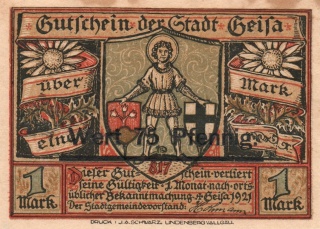 Gutschein der Stadt Geisa
über Mark
eine
Wert 75 Pfennig
817
Dieser Gutschein verliert
seine Gültigkeit 1 Monat nach orts
üblicher Bekanntmachung. Geisa 1921
Der Stadtgemeindevorstand:
1 Mark
1 Mark
DRUCK: J.A. SCHWARZ, LINDENBERG i/ALLGÄU.